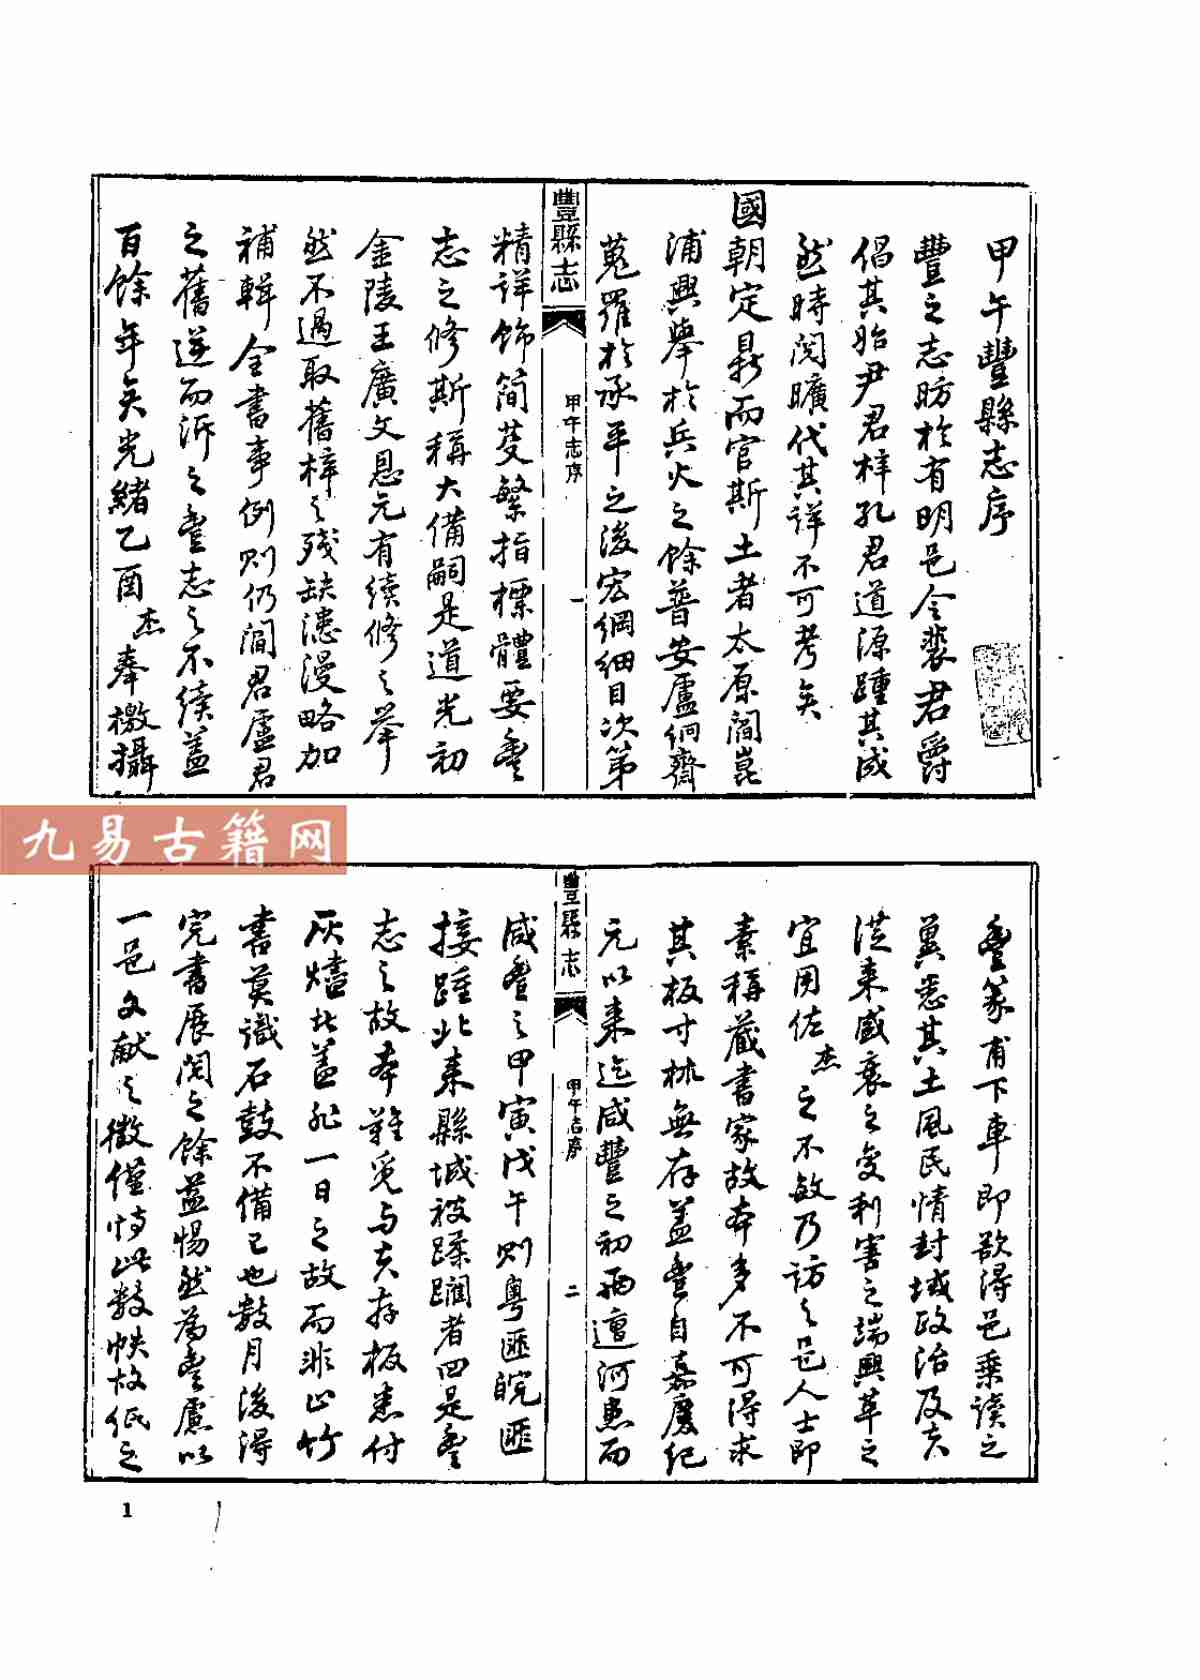 甲午豐縣志序
豐之志昉於有明邑令裴君爵
倡其始尹君梓孔君道源踵其成
然時閱曠代其詳不可考矣
國朝定鼎而官斯土者太原閻崑
浦興舉於兵火之餘普安盧絅齋
蒐羅於承平之後宏綱細目次第
豐縣志
甲午志序
一
精詳飾簡芟繁指標體要豐
志之修斯稱大備嗣是道光初
金陵王廣文恩元有續修之舉
然不過取舊梓之殘缺漶漫略加
補輯全書事例則仍閻君盧君
之舊遞而泝之豐志之不續蓋
百餘年矣光緒乙酉杰奉檄攝
九易古籍网
豐篆甫下車即欲得邑乘讀之
冀悉其土風民情封域政治及夫
從來盛衰之變利害之端興革之
宜用佐杰之不敏乃訪之邑人士即
素稱藏書家故本多不可得求
其板寸林無存蓋豐自嘉慶紀
元以來迄咸豐之初兩遭河患而
豐縣志
甲午志序
二
咸豐之甲寅戊午則粵匪皖匪
接踵北來縣城被蹂躪者四是豐
志之故本難覓与夫存板悉付
灰燼此蓋非一日之故而非止竹
書莫識石鼓不備已也數月後得
完書展閱之餘益惕然為豐慮以
一邑文獻之徵僅恃此數帙故紙之
1